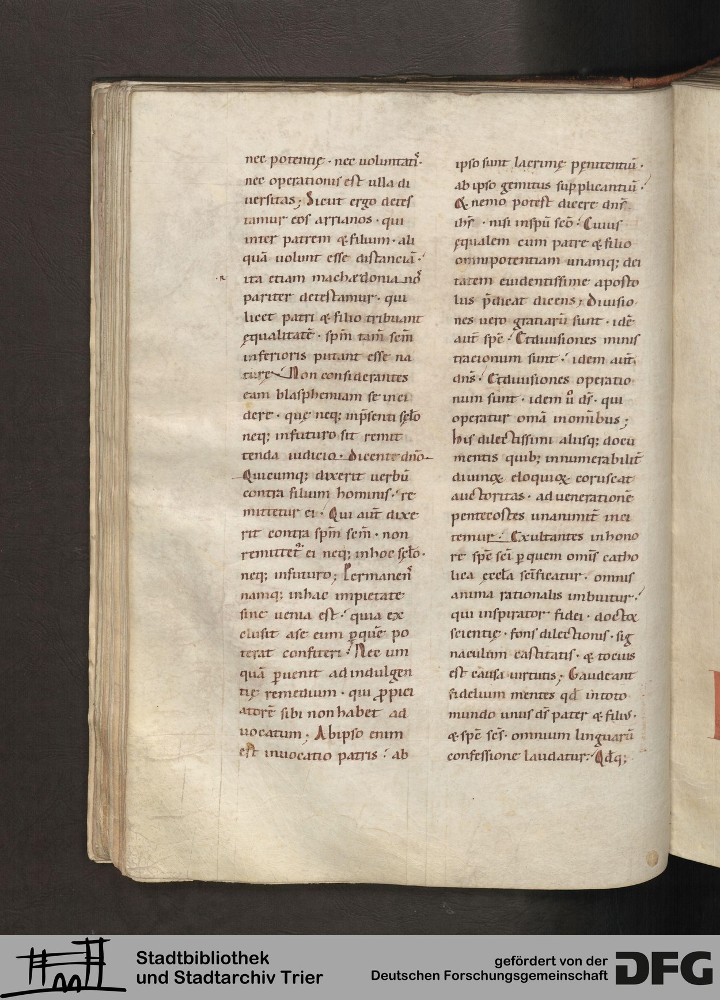 nec potentię · nec voluntatiſ ·
nec operationis est ulla di
uersitas; Sicut ergo detes
tamur eos arrianos · qui
inter patrem & filium · ali
quā volunt esse distanciā ·
ita etiam machędonianoſ
pariter detestamur · qui
licet patri & filio tribuant
ęqualitatē · sp̄m tam̄ sc̄m
inferioris putant esse na
turę · Non considerantes
eam blasphemiam se inci
dere · quę neq; inp̄senti sc̄lo
neq; infuturo sit remit
tenda iudicio · Dicente dn̄o
Quicumq; dixerit uerbū
contra filium hominis · re
mittetur ei · Qui aut̄ dixe
rit contra sp̄m sc̄m · non
remittet᷑ ei neq; inhoc sc̄lo ·
neq; infuturo; Permanenſ
namq; inhac impietate
sine uenia est · quia ex
clusit a se eum p̱ quē po
terat confiteri · Nec um
quā p̱uenit ad indulgen
tię remedium · qui ꝓpici
atorē sibi non habet ad
uocatum; Ab ipso enim
est inuocatio patris · ab
ipso sunt lacrimę penitentiū ·
ab ipso gemitus supplicantiū ·
& nemo potest dicere dn̄s
ih̄s · nisi insp̄u sc̄o · Cuius
ęqualem cum patre & filio
omnipotentiam unamq; dei
tatem euidentissime aposto
lus p̄dicat dicens; Diuisio
nes uero gratiarū sunt · idē
aut̄ sp̄c · Et diuisiones minis
tracionum sunt · idem aut̄
dn̄s · Et diuisiones operatio
num sunt · idem ů ds̄ · qui
operatur omā in omībus;
his dilectissimi aliisq; docu
mentis quib; innumerabilit᷑
diuinoꝝ eloquioꝝ coruscat
auctoritas · ad uenerationē
pentecostes unanimit᷑ inci
temur · Exultantes in hono
rē sp̄c sc̄i p̱ quem omīs catho
lica ęccl̄a sc̄ificatur · omnis
anima rationalis imbuitur ·
qui inspirator fidei · doctor
scientię · fons dilectionis · sig
naculum castitatis · & tocius
est causa uirtutis; Gaudeant
fidelium mentes qđ in toto
mundo unus ds̄ pater & filiuſ ·
& sp̄c sc̄s · omnium linguarū
confessione laudatur · Qđq;
Stadtbibliothek
und Stadtarchiv Trier
gefördert von der
Deutschen Forschungsgemeinschaft
DFG